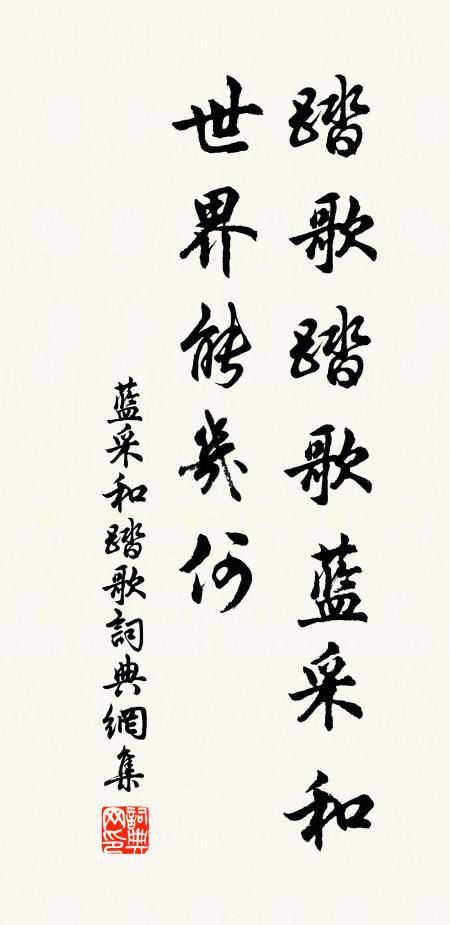 踏歌踏歌藍采和
世界能幾何
藍采和踏歌詞典網集
詞典
网印